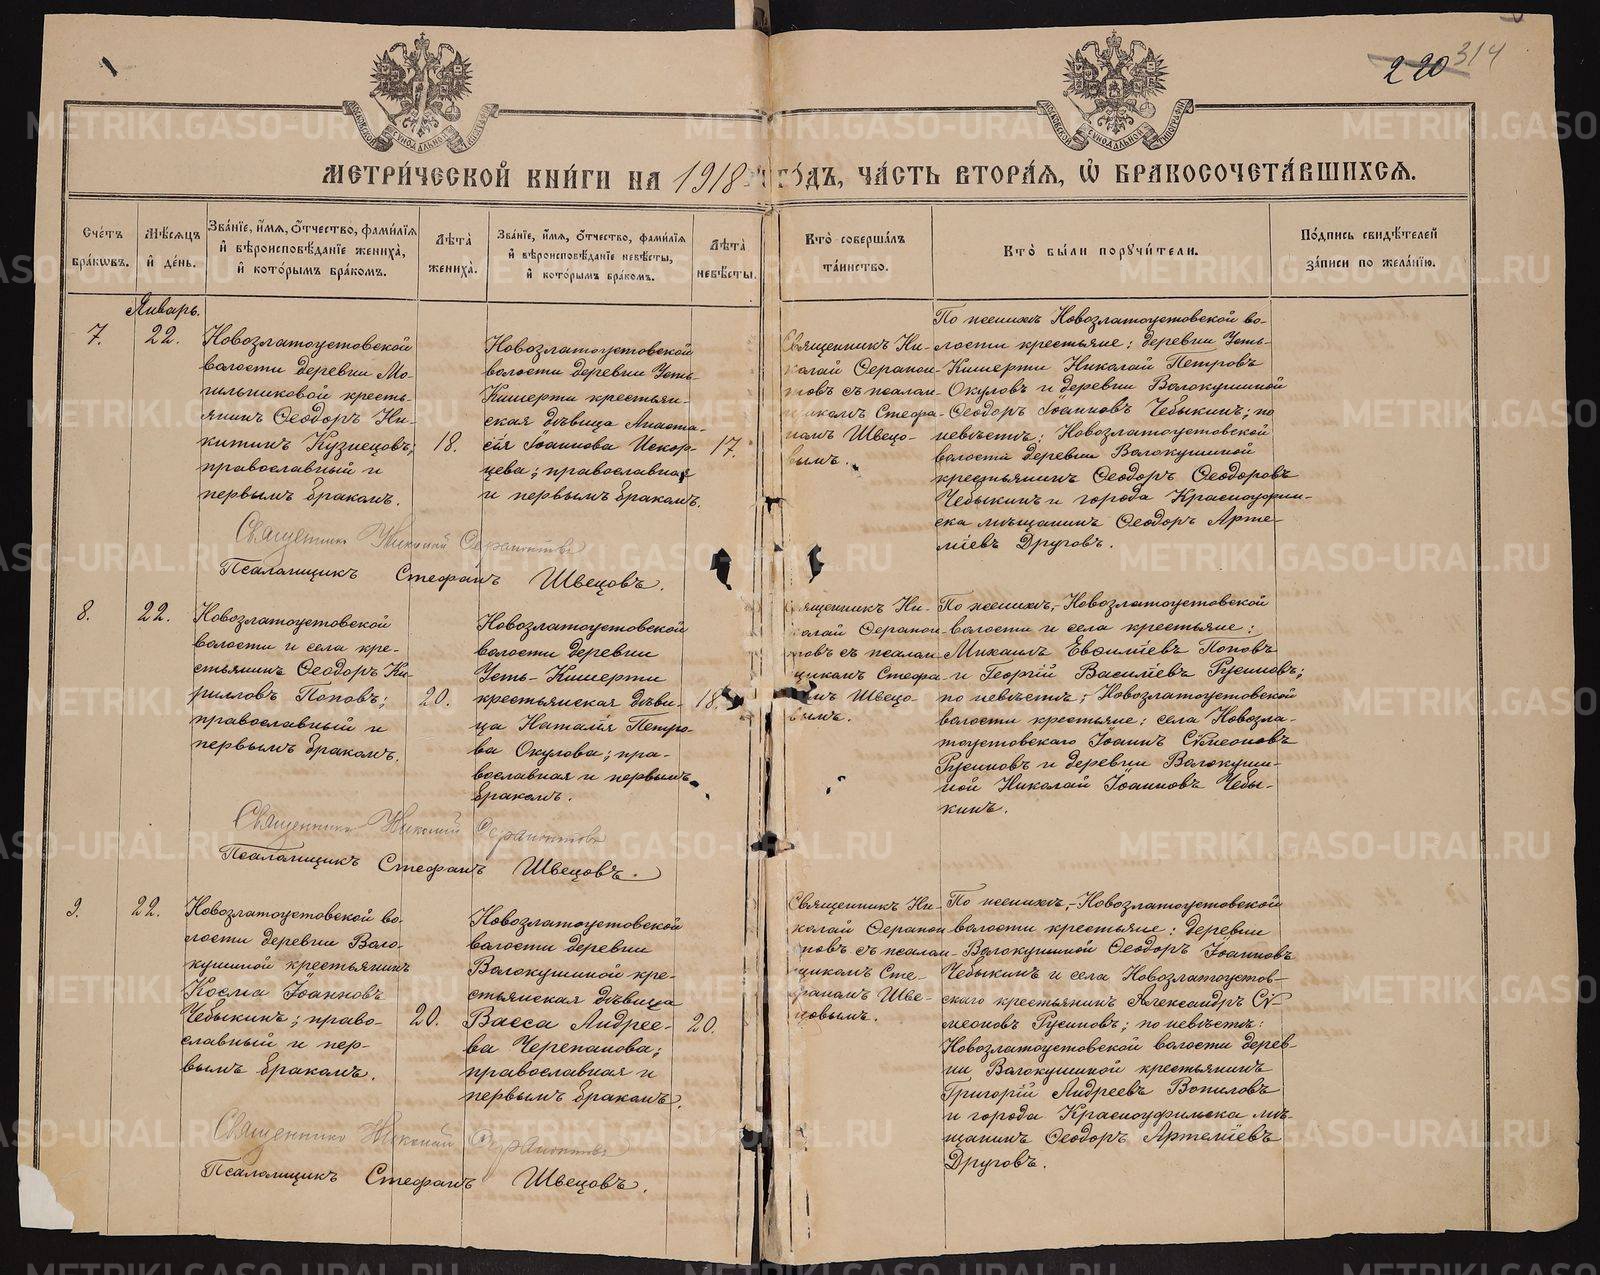 220 314
МЕТРИ́ЧЕСКОЙ КНИ́ГИ НА 1918 ГО́ДЪ, ЧА́СТЬ ВТОРА́Я, Ѡ҆ БРАКОСОЧЕТА́ВШИХСЯ.
Сче́тъ бра́кѡвъ.
Мѣ́сяцъ и҆ де́нь.
Зва́нїе, и҆́мя, ѻ҆́тчество, фами́лїя и҆ вѣроисповѣ́данїе жениха̀, и҆ кото́рымъ бра́комъ.
Лѣ́та жениха̀.
Зва́нїе, и҆́мя, ѻ҆́тчество, фами́лїя и҆ вѣроисповѣ́данїе невѣ́сты, и҆ кото́рымъ бра́комъ.
Лѣ́та невѣ́сты.
Кто̀ соверша́лъ та́инство.
Кто̀ бы́ли порꙋчи́тели.
По́дпись свидѣ́телей за́писи по жела́нїю.
Январь.
7.
22.
Новозлатоустовской
волости деревни Мо-
гильниковой кресть-
янинъ Ѳеодоръ Ни-
китинъ Кузнецовъ;
православный и
первымъ бракомъ.
18.
Новозлатоустовской
волости деревни Усть-
Кишерти крестьян-
ская дѣвица Анаста-
сія Іоаннова Искор-
цева; православная
и первымъ бракомъ.
17.
Священникъ Ни-
колай Ѳерапон-
товъ съ псалом-
щикомъ Стефа-
номъ Швецо-
вымъ.
По женихѣ Новозлатоустовской во-
лости крестьяне: деревни Усть-
Кишерти Николай Петровъ
Окуловъ и деревни Волокушиной
Ѳеодоръ Іоанновъ Чебыкинъ; по
невѣстѣ: Новозлатоустовской
волости деревни Волокушиной
крестьянинъ Ѳеодоръ Ѳеодоровъ
Чебыкинъ и города Красноуфим-
ска мѣщанинъ Ѳеодоръ Арте-
міевъ Друговъ.
Священникъ Николай Ѳерапонтовъ
Псаломщикъ Стефанъ Швецовъ.
8.
22.
Новозлатоустовской
волости и села кре-
стьянинъ Ѳеодоръ Ки-
рилловъ Поповъ;
православный и
первымъ бракомъ.
20.
Новозлатоустовской
волости деревни
Усть-Кишерти
крестьянская дѣви-
ца Наталія Петро-
ва Окулова; пра-
вославная и первымъ
бракомъ.
18.
Священникъ Ни-
колай Ѳерапон-
товъ съ псалом-
щикомъ Стефа-
номъ Швецо-
вымъ.
По женихѣ, Новозлатоустовской
волости и села крестьяне:
Михаилъ Евѳиміевъ Поповъ
и Георгій Василіевъ Русиновъ;
по невѣстѣ; Новозлатоустовской
волости крестьяне: села Новозла-
тоустовскаго Іоаннъ Сѵмеоновъ
Русиновъ и деревни Волокуши-
ной Николай Іоанновъ Чебы-
кинъ.
Священникъ Николай Ѳерапонтовъ
Псаломщикъ Стефанъ Швецовъ.
9.
22.
Новозлатоустовской во-
лости деревни Воло-
кушиной крестьянинъ
Косма Іоанновъ
Чебыкинъ; право-
славный и пер-
вымъ бракомъ.
20.
Новозлатоустовской
волости деревни
Волокушиной кре-
стьянская дѣвица
Васса Андрее-
ва Черепанова;
православная и
первымъ бракомъ.
20.
Священникъ Ни-
колай Ѳерапон-
товъ съ псалом-
щикомъ Сте-
фаномъ Шве-
цовымъ.
По женихѣ, Новозлатоустовской
волости крестьяне: деревни
Волокушиной Ѳеодоръ Іоанновъ
Чебыкинъ и села Новозлатоустов-
скаго крестьянинъ Александръ Сѵ-
меоновъ Русиновъ; по невѣстѣ:
Новозлатоустовской волости дерев-
ни Волокушиной крестьянинъ
Григорій Андреевъ Вопиловъ
и города Красноуфимска мѣ-
щанинъ Ѳеодоръ Артеміевъ
Друговъ.
Священникъ Николай Ѳерапонтовъ
Псаломщикъ Стефанъ Швецовъ.
METRIKI.GASO-URAL.RU